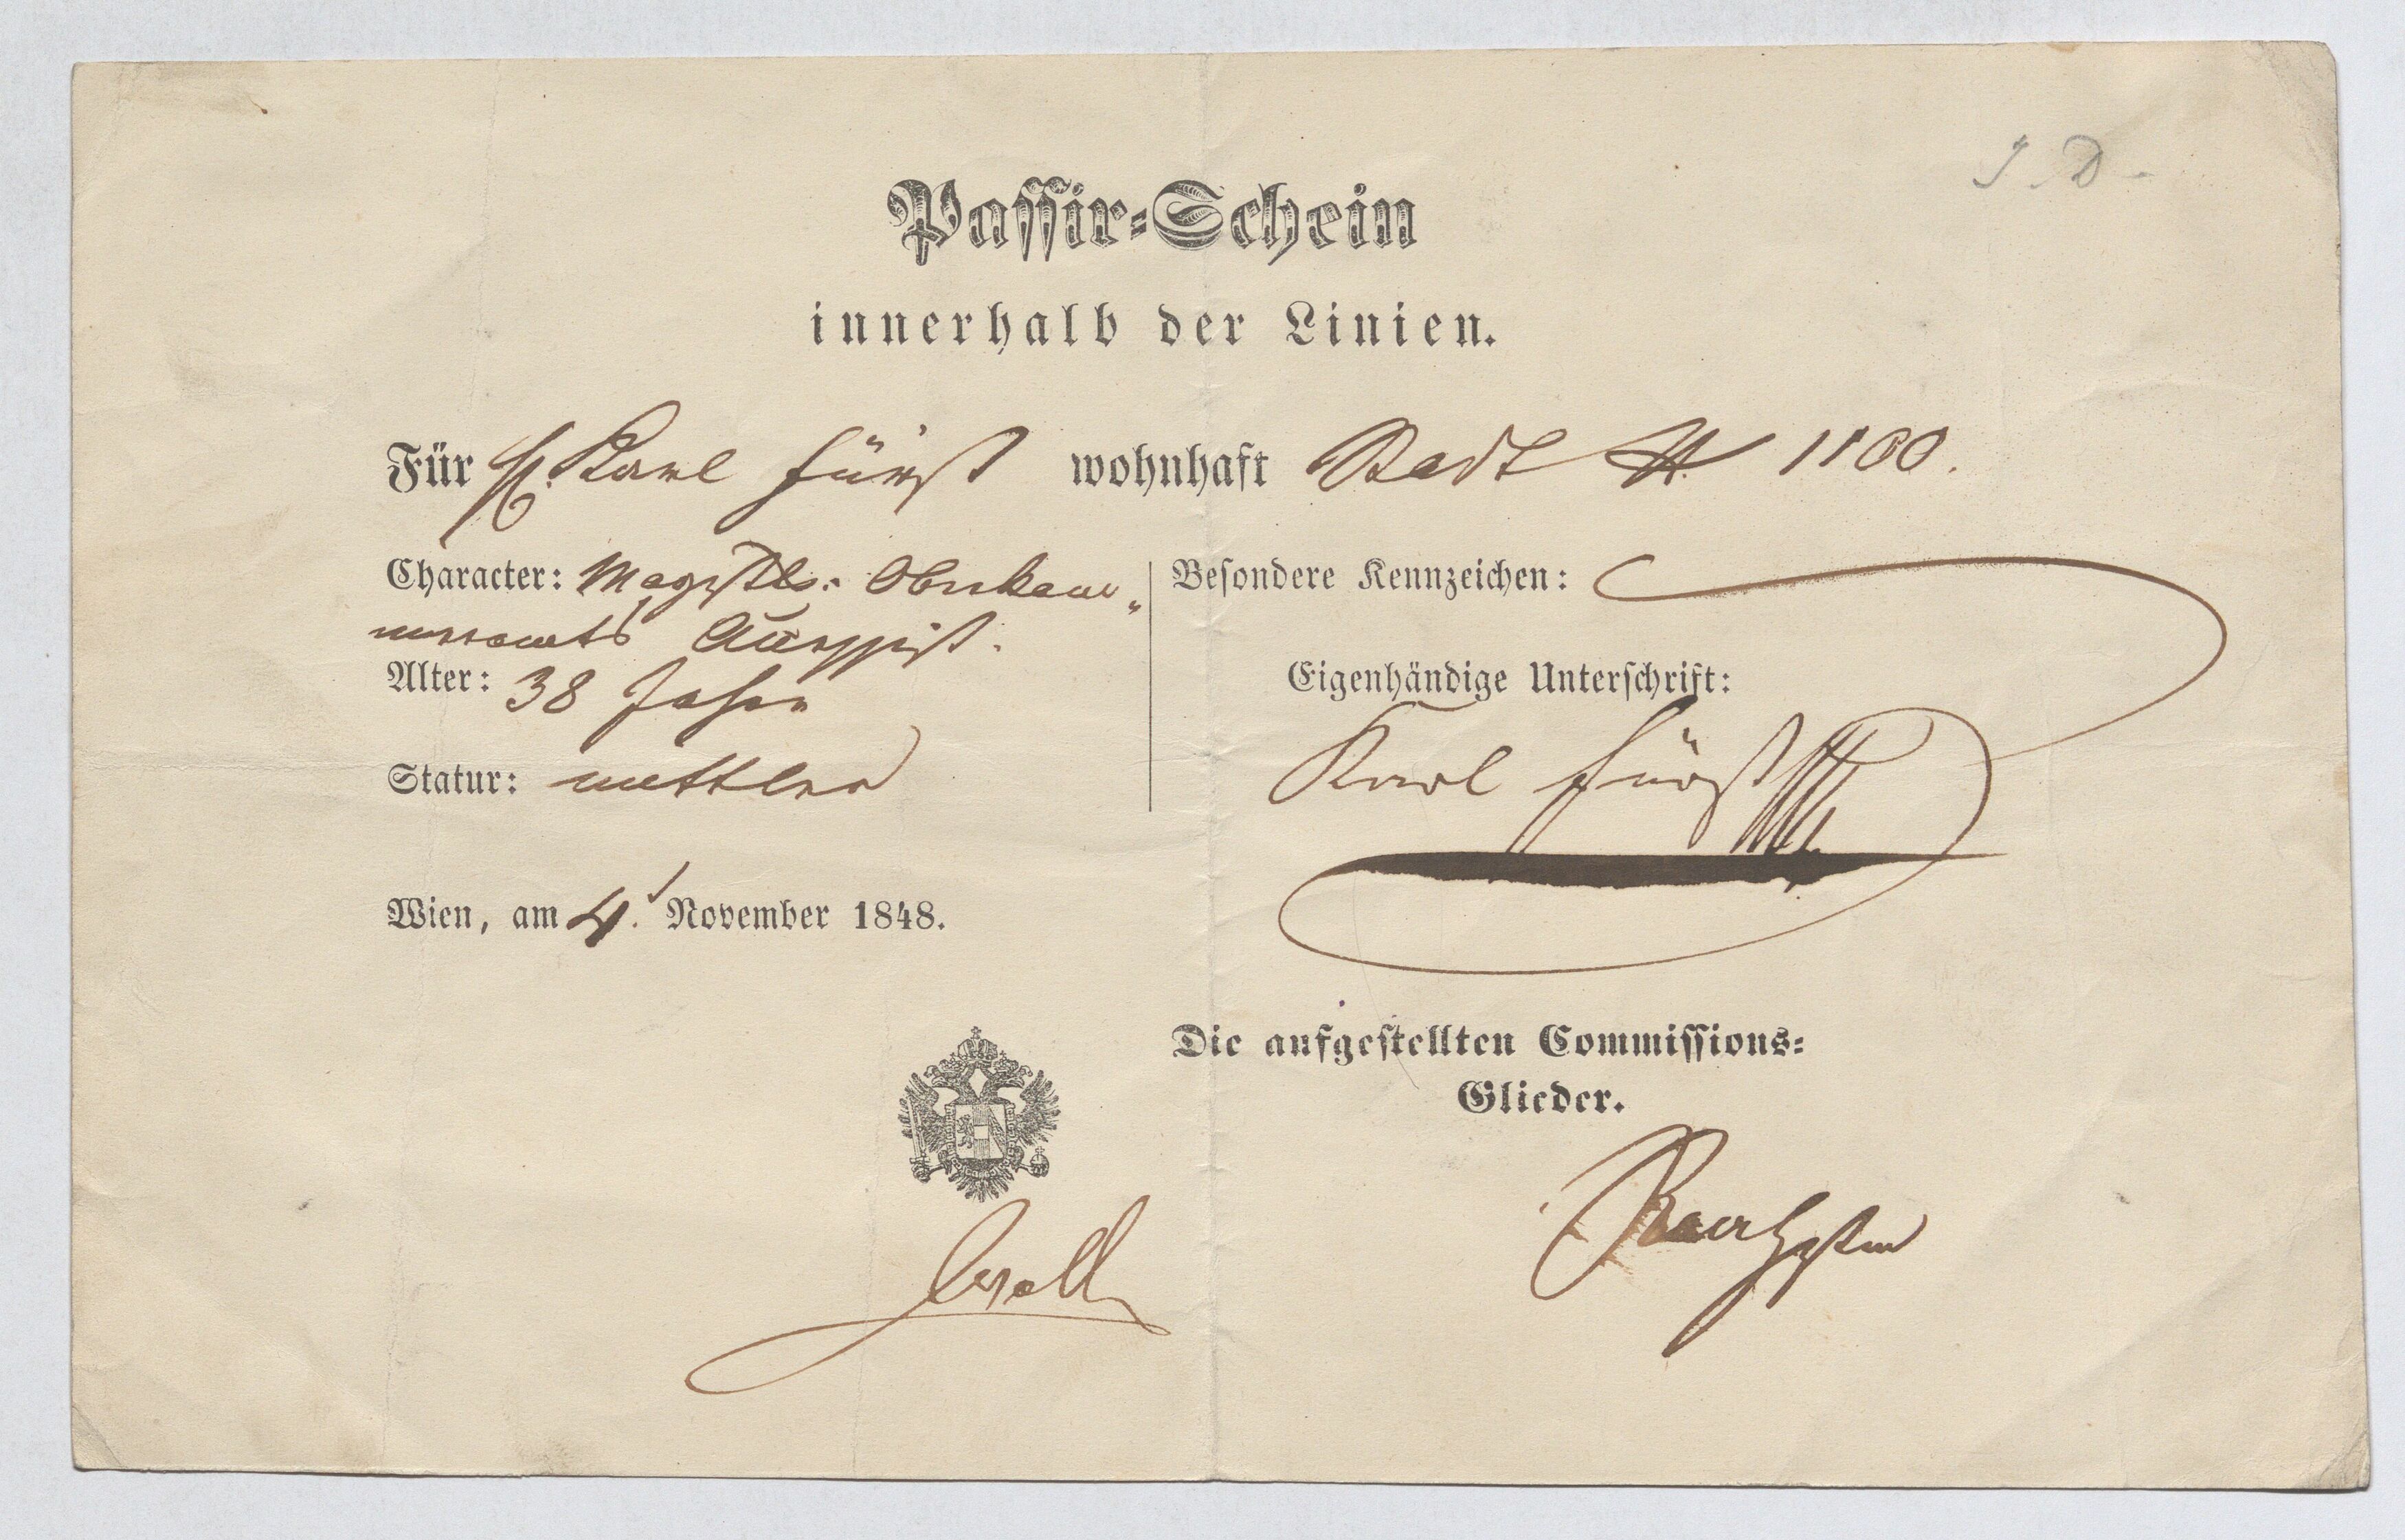 J. D.
Passir-Schein
innerhalb der Linien.
Für H. Karl Fürst wohnhaft Stadt N 1100.
Character: Magistts. Oberkam„
Besondere Kennzeichen:
meramts
Alter: 38 Jahre
Eigenhändige Unterschrift:
Karl Fürst
Statur: mittlere
Wien, am 4. November 1848.
Die aufgestellten Commissions-
Glieder.